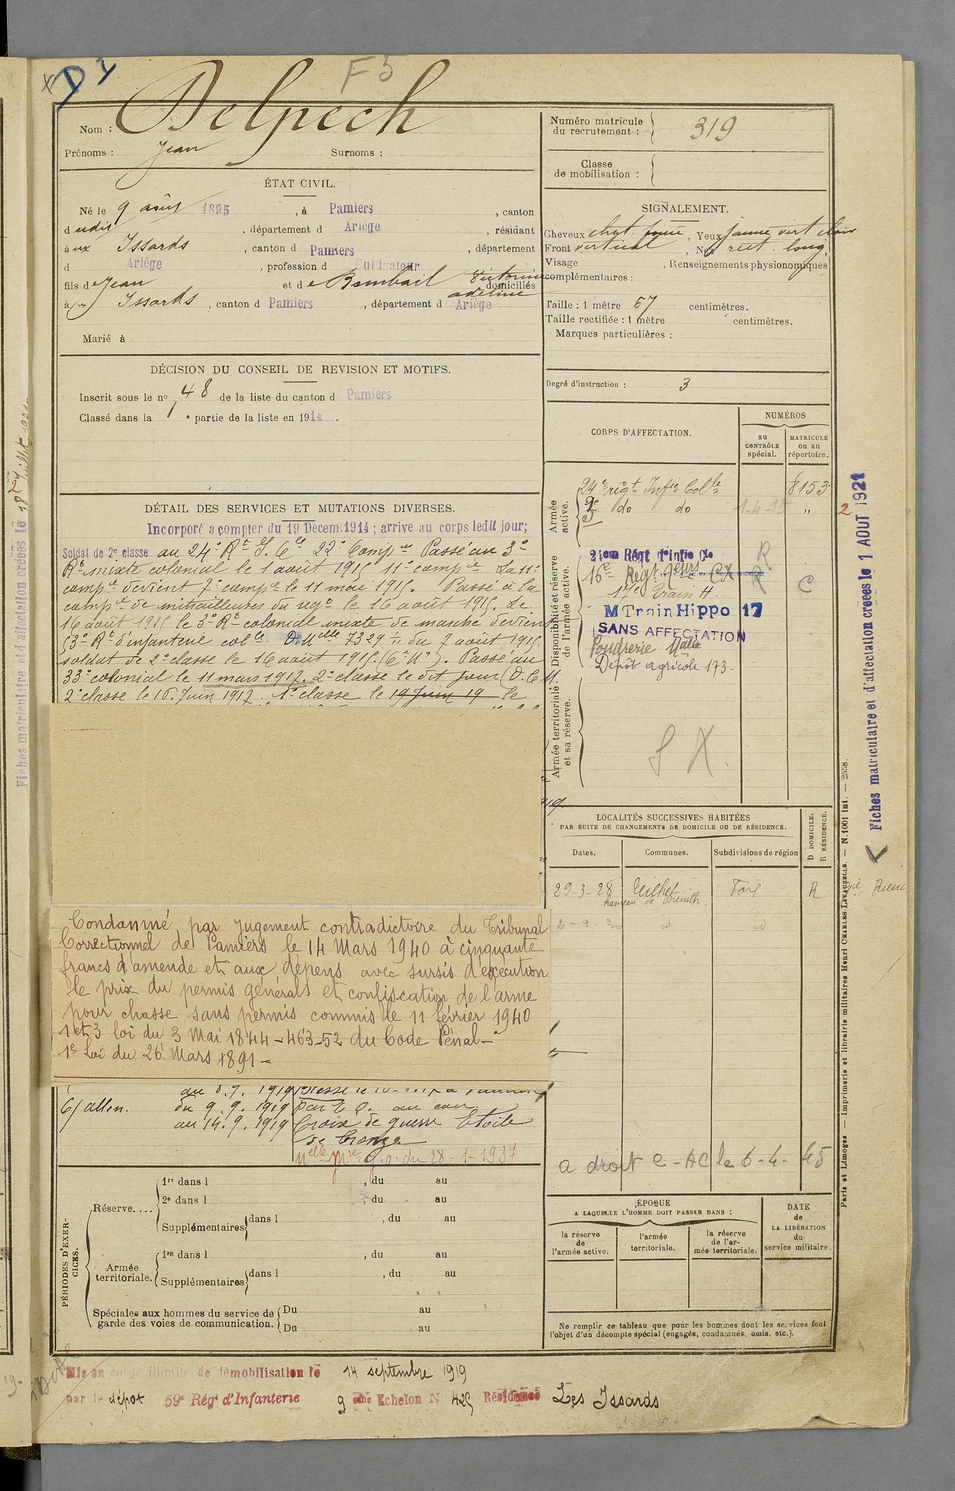 D1
F5
Nom : Delpech
Prénoms : Jean Surnoms :
Numéro matricule du recrutement : 319
Classe de mobilisation :
ÉTAT CIVIL.
Né le 9 août 1895, à Pamiers, canton
d udit, département d Ariège, résidant
à aux Issards, canton d Pamiers, département
d Ariège, profession d Cultivateur
fils de Jean et de Bombail Victorine Adeline domiciliés
à aux Issards, canton d Pamiers, département d Ariège
Marié à
SIGNALEMENT.
Cheveux chat. foncé, Yeux jaune vert clair
Front vertical, Nez rect. long
Visage , Renseignements physionomiques
complémentaires :
Taille : 1 mètre 67 centimètres.
Taille rectifiée : 1 mètre centimètres.
Marques particulières :
Degré d'instruction : 3
DÉCISION DU CONSEIL DE REVISION ET MOTIFS.
Inscrit sous le nº 48 de la liste du canton d Pamiers
Classé dans la 1 e partie de la liste en 1914.
DÉTAIL DES SERVICES ET MUTATIONS DIVERSES.
Incorporé a compter du 19 Décem.1914 ; arrive au corps ledit jour;
Soldat de 2e classe au 24e Rt I. Cle 22e Compie Passé au 3e
Rt mixte colonial le 1 août 1915 11e compie La 11e
compie devient 7e compie le 11 mai 1915. Passé à la
compie de mitrailleuses du régt le 16 août 1915. Le
16 août 1915 le 3e Rt colonial mixte de marche devient
53e Rt d'infanterie colle D. Mlle 7329 1/1 du 7 août 1915
soldat de 2e classe le 16 août 1915. Passé au
33e colonial le 11 mars 1917. 2e classe le dit jour
2e classe le 16 Juin 1917. 1e classe le 19 Juin 19 le
Condamné par jugement contradictoire du Tribunal
Correctionnel de Pamiers le 14 Mars 1940 à cinquante
francs d'amende et aux dépens avec sursis d'exécution
le prix du permis générals et confiscation de l'arme
pour chasse sans permis commis le 11 février 1940
1 et 3 loi du 3 Mai 1844 - 463-52 du Code Pénal -
1e Loi du 26 Mars 1891 -
au 8.9.1919
6/ allem. du 9.9.1919
au 14.9.1919
Croix de guerre Etoile
de bronze
J.O. du 28-1-1937
CORPS D'AFFECTATION.
NUMÉROS
au CONTRÔLE spécial.
MATRICULE ou au répertoire.
Armée active.
24e régt Infie Colle 8153
3e do do 1-4-15 "
Disponibilité et réserve de l'armée active.
21em Régt d'infie Cle R
16e R
17e C Train H. C
M Train Hippo 17
SANS AFFECTATION
Poudrerie Nalle
Dépôt agricole 173-
Armée territoriale et sa réserve.
S X.
LOCALITÉS SUCCESSIVES HABITÉES
PAR SUITE DE CHANGEMENTS DE DOMICILE OU DE RÉSIDENCE.
Dates. Communes. Subdivisions de région D DOMICILE. R RÉSIDENCE.
29-3-28 Teilhet Foix R
a droit C - AC le 6-4-45
ÉPOQUE
A LAQUELLE L'HOMME DOIT PASSER DANS :
la réserve de l'armée active.
l'armée territoriale.
la réserve de l'armée territoriale.
DATE de LA LIBÉRATION du service militaire.
Ne remplir ce tableau que pour les hommes dont les services font
l'objet d'un décompte spécial (engagés, condamnés, omis, etc.).
PÉRIODES D'EXERCICES.
Réserve....
1re dans l , du au
2e dans l , du au
Supplémentaires dans l , du au
Armée territoriale.
1re dans l , du au
Supplémentaires dans l , du au
Spéciales aux hommes du service de garde des voies de communication.
Du au
Du au
Mis en congé illimité de démobilisation le 14 septembre 1919
par le dépôt 59e Rég d'Infanterie 9 eme Echelon N 425 Résidence Les Issards
Fiches matriculaire et d'affectation créées le 1 AOUT 1921
Paris et Limoges. — Imprimerie et librairie militaires Henri CHARLES-LAVAUZELLE. — N. 1001 Int. — 2538.